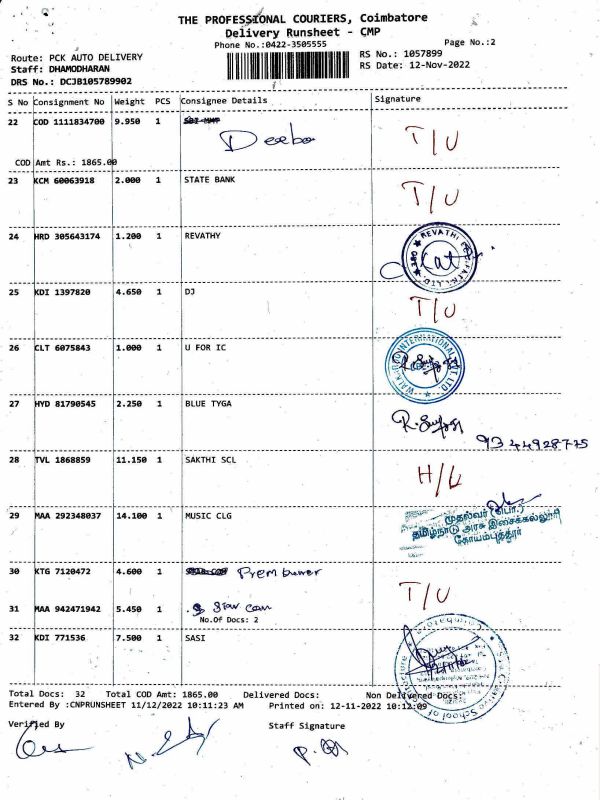 THE PROFESSIONAL COURIERS, Coimbatore
Delivery Runsheet - CMP
Phone No.:0422-3505555
Page No.:2
Route: PCK AUTO DELIVERY
RS No.: 1057899
Staff: DHAMODHARAN
RS Date: 12-Nov-2022
DRS No.: DCJB105789902
S No Consignment No Weight PCS Consignee Details Signature
22 COD 1111834700 9.950 1 T/U
COD Amt Rs.: 1865.00
23 KCM 60063918 2.000 1 STATE BANK T/U
24 HRD 305643174 1.200 1 REVATHY
25 KDI 1397820 4.650 1 DJ T/U
26 CLT 6075843 1.000 1 U FOR IC
27 HYD 81790545 2.250 1 BLUE TYGA
9344928775
28 TVL 1868859 11.150 1 SAKTHI SCL
29 MAA 292348037 14.100 1 MUSIC CLG
முதல்வர் (பொ.)
தமிழ்நாடு அரசு இசைக்கல்லூரி
கோயம்புத்தூர்
30 KTG 7120472 4.600 1 T/U
31 MAA 942471942 5.450 1
No.Of Docs: 2
32 KDI 771536 7.500 1 SASI
Total Docs: 32 Total COD Amt: 1865.00 Delivered Docs: Non Delivered Docs:
Entered By :CNPRUNSHEET 11/12/2022 10:11:23 AM Printed on: 12-11-2022 10:12:09
Verified By Staff Signature